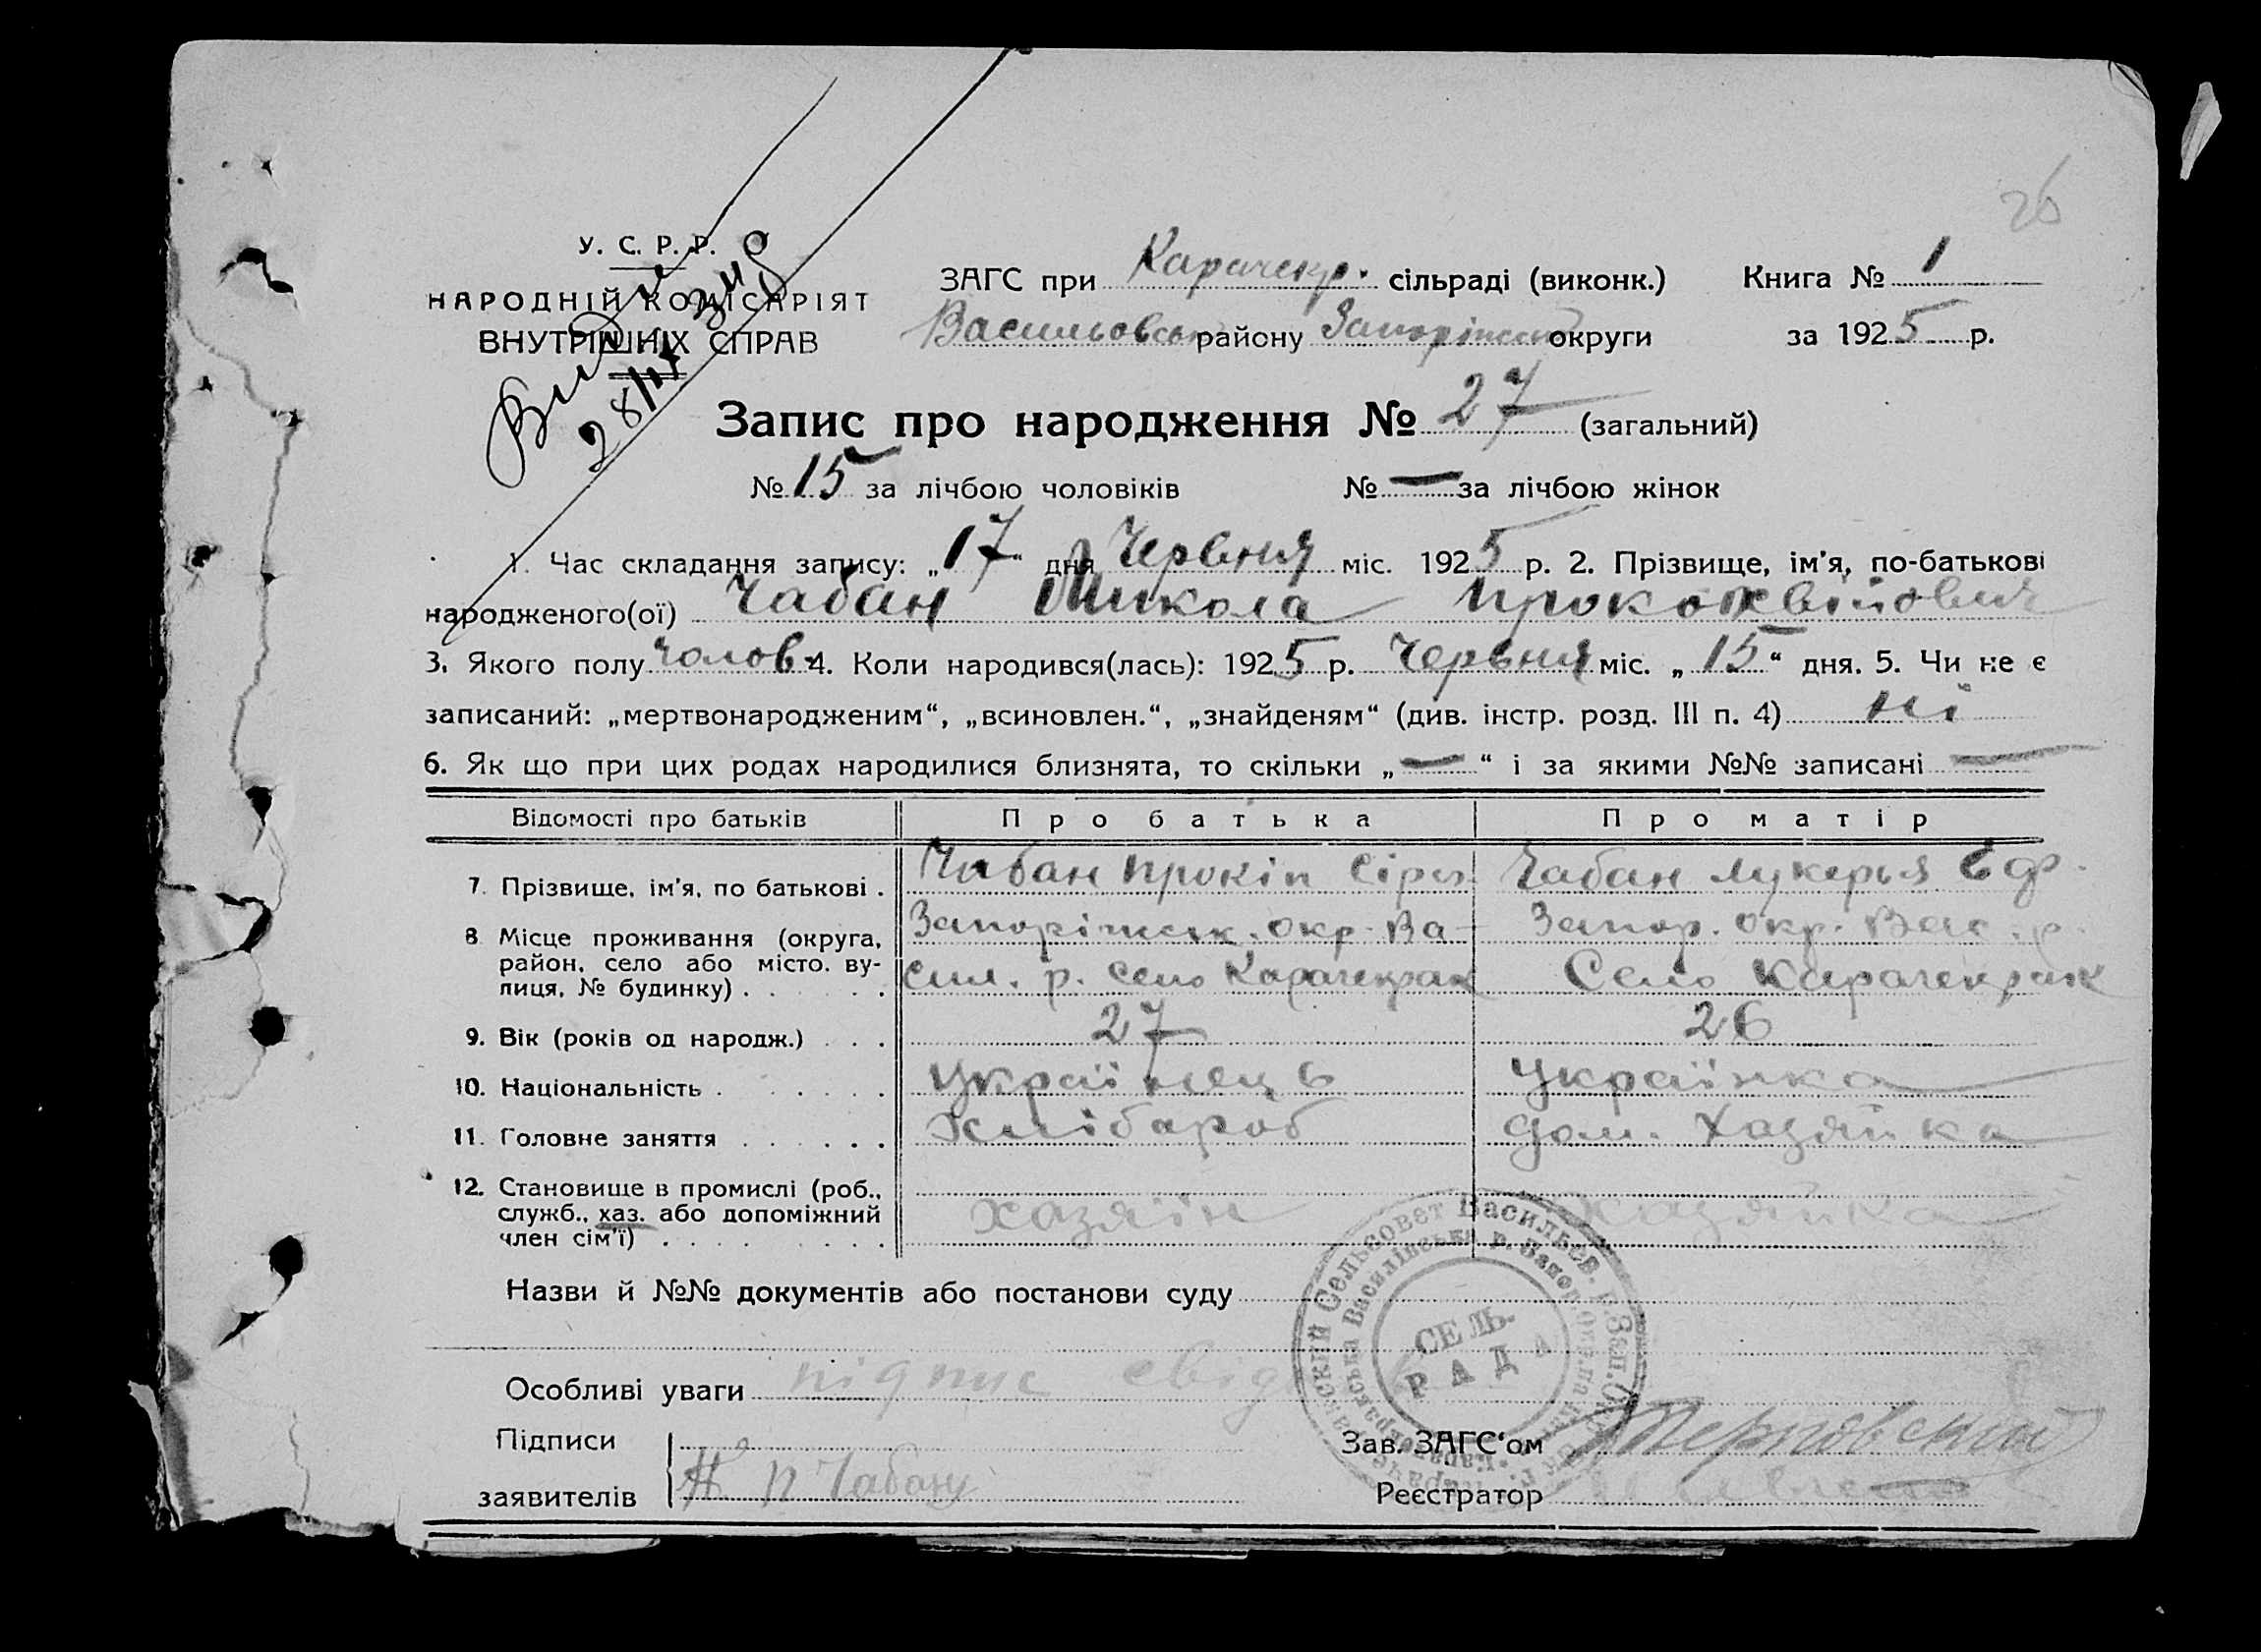 26
У. С. Р. Р.
НАРОДНІЙ КОМІСАРІЯТ
ВНУТРІШНІХ СПРАВ
28/IV
ЗАГС при Карачекр. сільраді (виконк.) Книга № 1
Васильовськ району Запоріжськ округи за 1925 р.
Запис про народження № 27 (загальний)
№ 15 за лічбою чоловіків № — за лічбою жінок
1. Час складання запису: „17“ дня Червня міс. 1925 р. 2. Прізвище, ім'я, по-батькові
народженого(ої) Чабан Микола
3. Якого полу чолов. 4. Коли народився(лась): 1925 р. Червня міс. „15“ дня. 5. Чи не є
записаний: „мертвонародженим“, „всиновлен.“, „знайденям“ (див. інстр. розд. III п. 4) ні
6. Як що при цих родах народилися близнята, то скільки „—“ і за якими №№ записані —
Відомості про батьків Про батька Про матір
7. Прізвище, ім'я, по батькові . Чабан Прокіп Чабан Лукерья Еф.
8 Місце проживання (округа, Запоріжськ. окр. Ва- Запор. окр. Вас. р.
район, село або місто, ву-
лиця, № будинку) . . . . сил. р. село Карачекрак Село Карачекрак
9. Вік (років од народж.) . . . 27 26
10. Національність . . . . . . українець українка
11. Головне заняття . . . . . . Хлібароб дом. хазяйка
12. Становище в промислі (роб.,
служб., хаз. або допоміжний хазяїн хазяйка
член сім'ї) . . . . . . . . .
Назви й №№ документів або постанови суду
СЕЛЬ-
РАДА
Особливі уваги підпис
Підписи Зав. ЗАГС'ом
заявителів П Чабан Реєстратор